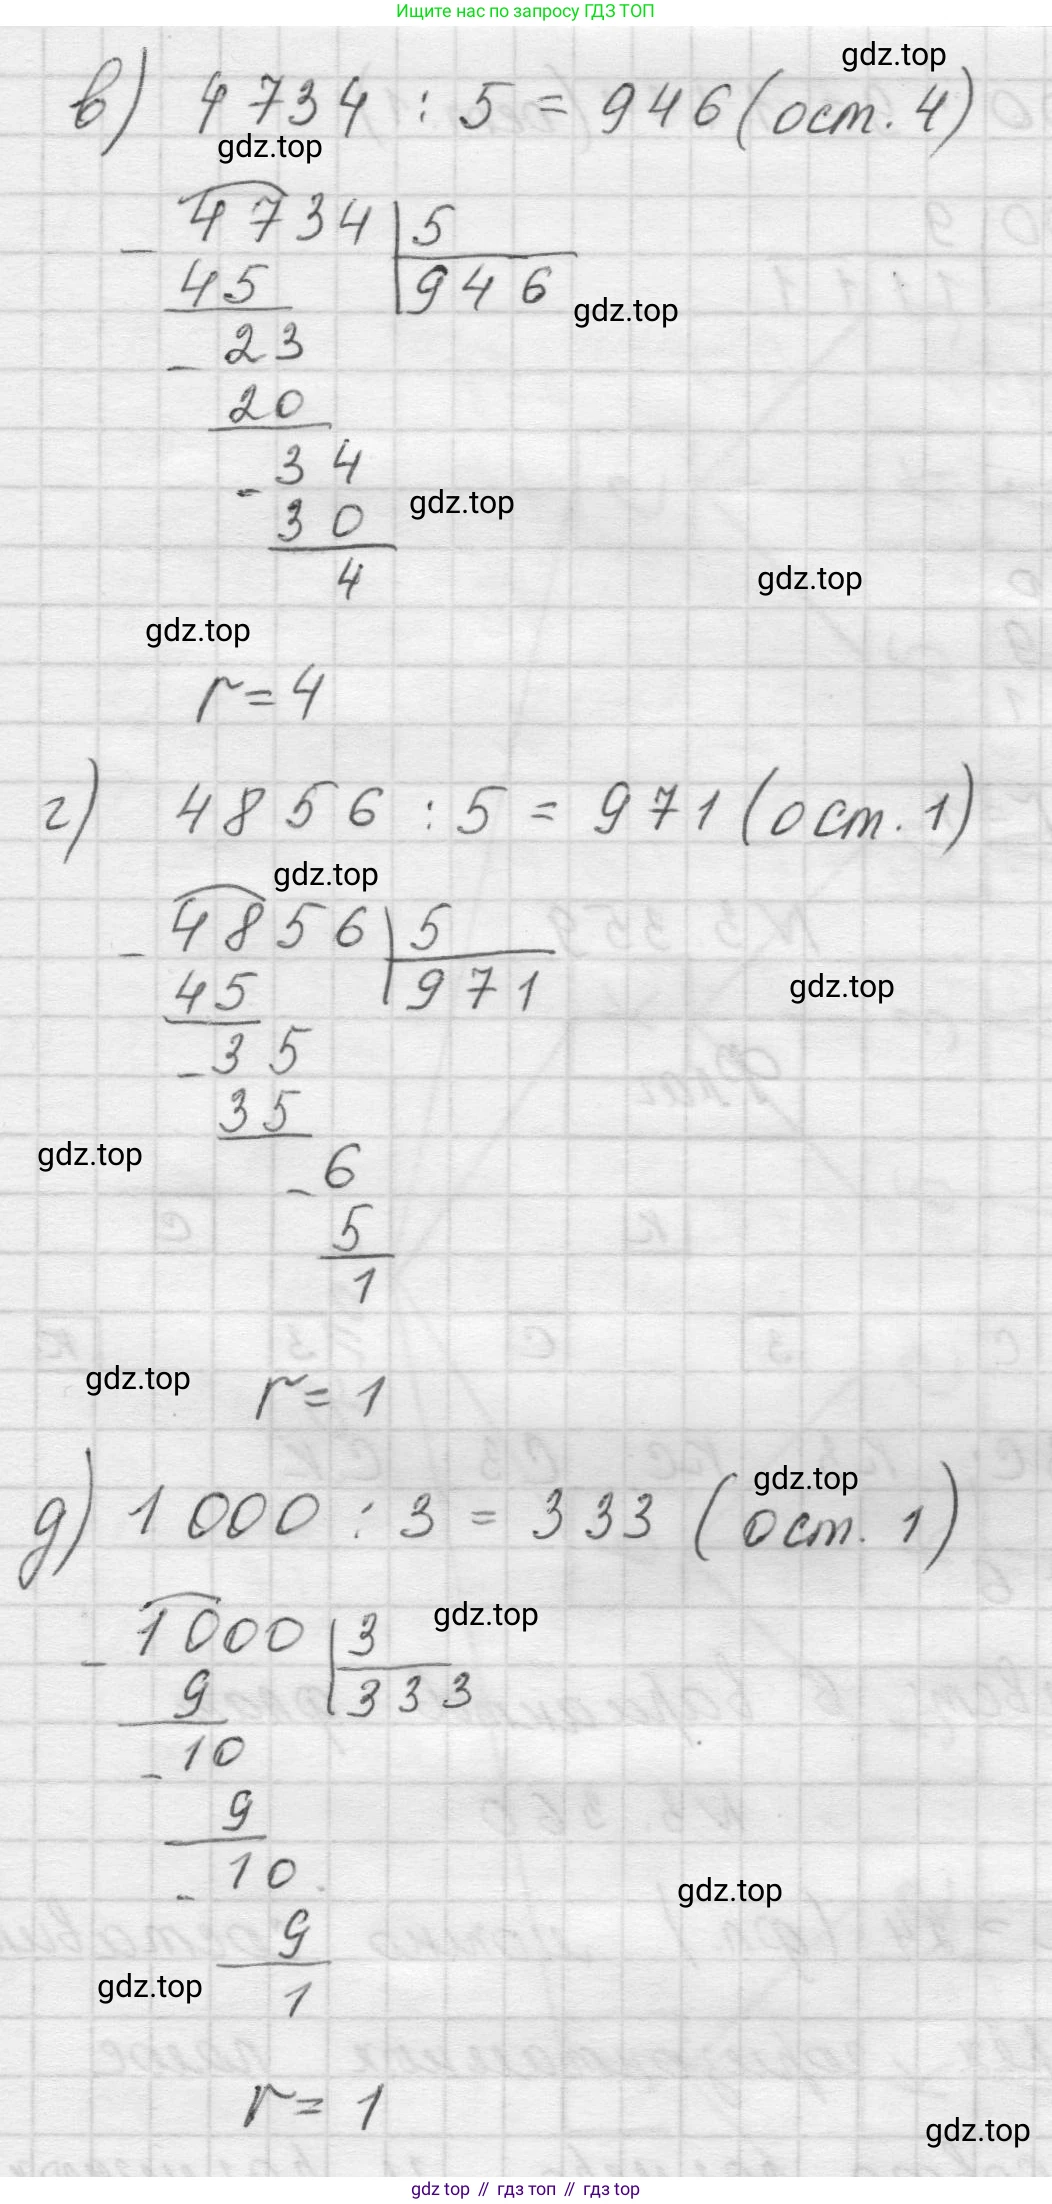 Ищите нас по запросу ГДЗ ТОП
gdz.top
в) 4734 : 5 = 946 (ост. 4)
gdz.top
4734 | 5
- 45 | 946
gdz.top
- 23
20
- 34
30
gdz.top
4
gdz.top
gdz.top
r = 4
г) 4856 : 5 = 971 (ост. 1)
gdz.top
- 4856 | 5
45 | 971
gdz.top
- 35
35
gdz.top
- 6
5
1
gdz.top
r = 1
gdz.top
д) 1000 : 3 = 333 (ост. 1)
gdz.top
- 1000 | 3
9 | 333
- 10
9
- 10
gdz.top
9
gdz.top
1
r = 1
gdz.top
gdz top // гдз топ // гдз top